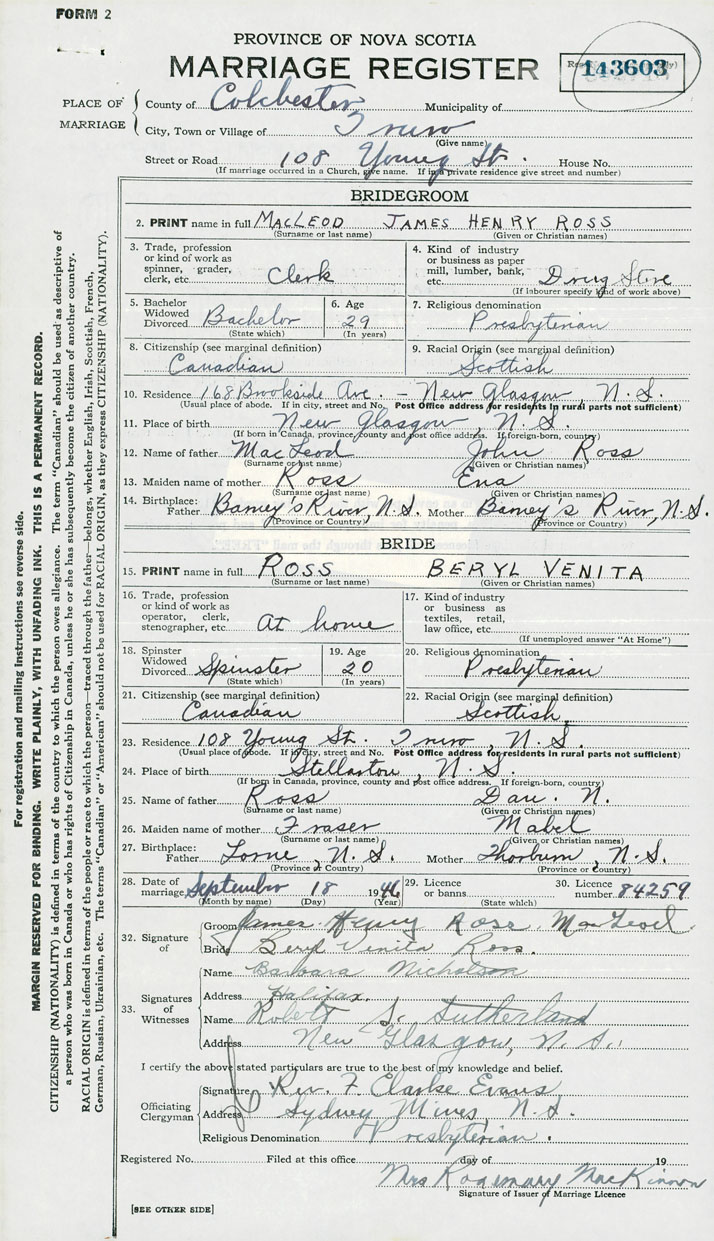 FORM 2
PROVINCE OF NOVA SCOTIA
MARRIAGE REGISTER
143603
PLACE OF MARRIAGE
County of Colchester Municipality of
City, Town or Village of Truro
(Give name)
Street or Road 108 Young St. House No.
(If marriage occurred in a Church, give name. If in a private residence give street and number)
BRIDEGROOM
2. PRINT name in full MACLEOD JAMES HENRY ROSS
(Surname or last name) (Given or Christian names)
3. Trade, profession or kind of work as spinner, grader, clerk, etc. Clerk
4. Kind of industry or business as paper mill, lumber, bank, etc. Drug Store
(If labourer specify kind of work above)
5. Bachelor Widowed Divorced Bachelor
(State which)
6. Age 29
(In years)
7. Religious denomination
Presbyterian
8. Citizenship (see marginal definition)
Canadian
9. Racial Origin (see marginal definition)
Scottish
10. Residence 168 Brookside Ave. - New Glasgow, N.S.
(Usual place of abode. If in city, street and No. Post Office address for residents in rural parts not sufficient)
11. Place of birth New Glasgow, N.S.
(If born in Canada, province, county and post office address. If foreign-born, country)
12. Name of father MacLeod John Ross
(Surname or last name) (Given or Christian names)
13. Maiden name of mother Ross Ena
(Surname or last name) (Given or Christian names)
14. Birthplace: Father Barney's River, N.S. Mother Barney's River, N.S.
(Province or Country) (Province or Country)
BRIDE
15. PRINT name in full ROSS BERYL VENITA
(Surname or last name) (Given or Christian names)
16. Trade, profession or kind of work as operator, clerk, stenographer, etc. At home
17. Kind of industry or business as textiles, retail, law office, etc.
(If unemployed answer "At Home")
18. Spinster Widowed Divorced Spinster
(State which)
19. Age 20
(In years)
20. Religious denomination
Presbyterian
21. Citizenship (see marginal definition)
Canadian
22. Racial Origin (see marginal definition)
Scottish
23. Residence 108 Young St. Truro N.S.
(Usual place of abode. If in city, street and No. Post Office address for residents in rural parts not sufficient)
24. Place of birth Stellarton, N.S.
(If born in Canada, province, county and post office address. If foreign-born, country)
25. Name of father Ross Dan. N.
(Surname or last name) (Given or Christian names)
26. Maiden name of mother Fraser Mabel
(Surname or last name) (Given or Christian names)
27. Birthplace: Father Lorne, N.S. Mother Thorburn, N.S.
(Province or Country) (Province or Country)
28. Date of marriage September 18 1946
(Month by name) (Day) (Year)
29. Licence or banns
(State which)
30. Licence number 84259
32. Signature of
Groom James Henry Ross MacLeod
Bride Beryl Venita Ross.
33. Signatures of Witnesses
Name Barbara Nicholson
Address Halifax.
Name Robert S. Sutherland
Address New Glasgow, N.S.
I certify the above stated particulars are true to the best of my knowledge and belief.
Officiating Clergyman
Signature Rev. F. Clarke Evans
Address Sydney Mines, N.S.
Religious Denomination Presbyterian.
Registered No. Filed at this office day of 19
Mrs Rosemary MacKinnon
Signature of Issuer of Marriage Licence
[SEE OTHER SIDE]
For registration and mailing instructions see reverse side.
MARGIN RESERVED FOR BINDING. WRITE PLAINLY, WITH UNFADING INK. THIS IS A PERMANENT RECORD.
CITIZENSHIP (NATIONALITY) is defined in terms of the country to which the person owes allegiance. The term "Canadian" should be used as descriptive of
a person who was born in Canada or who has rights of Citizenship in Canada, unless he or she has subsequently become the citizen of another country.
RACIAL ORIGIN is defined in terms of the people or race to which the person—traced through the father—belongs, whether English, Irish, Scottish, French,
German, Russian, Ukrainian, etc. The terms "Canadian" or "American" should not be used for RACIAL ORIGIN, as they express CITIZENSHIP (NATIONALITY).